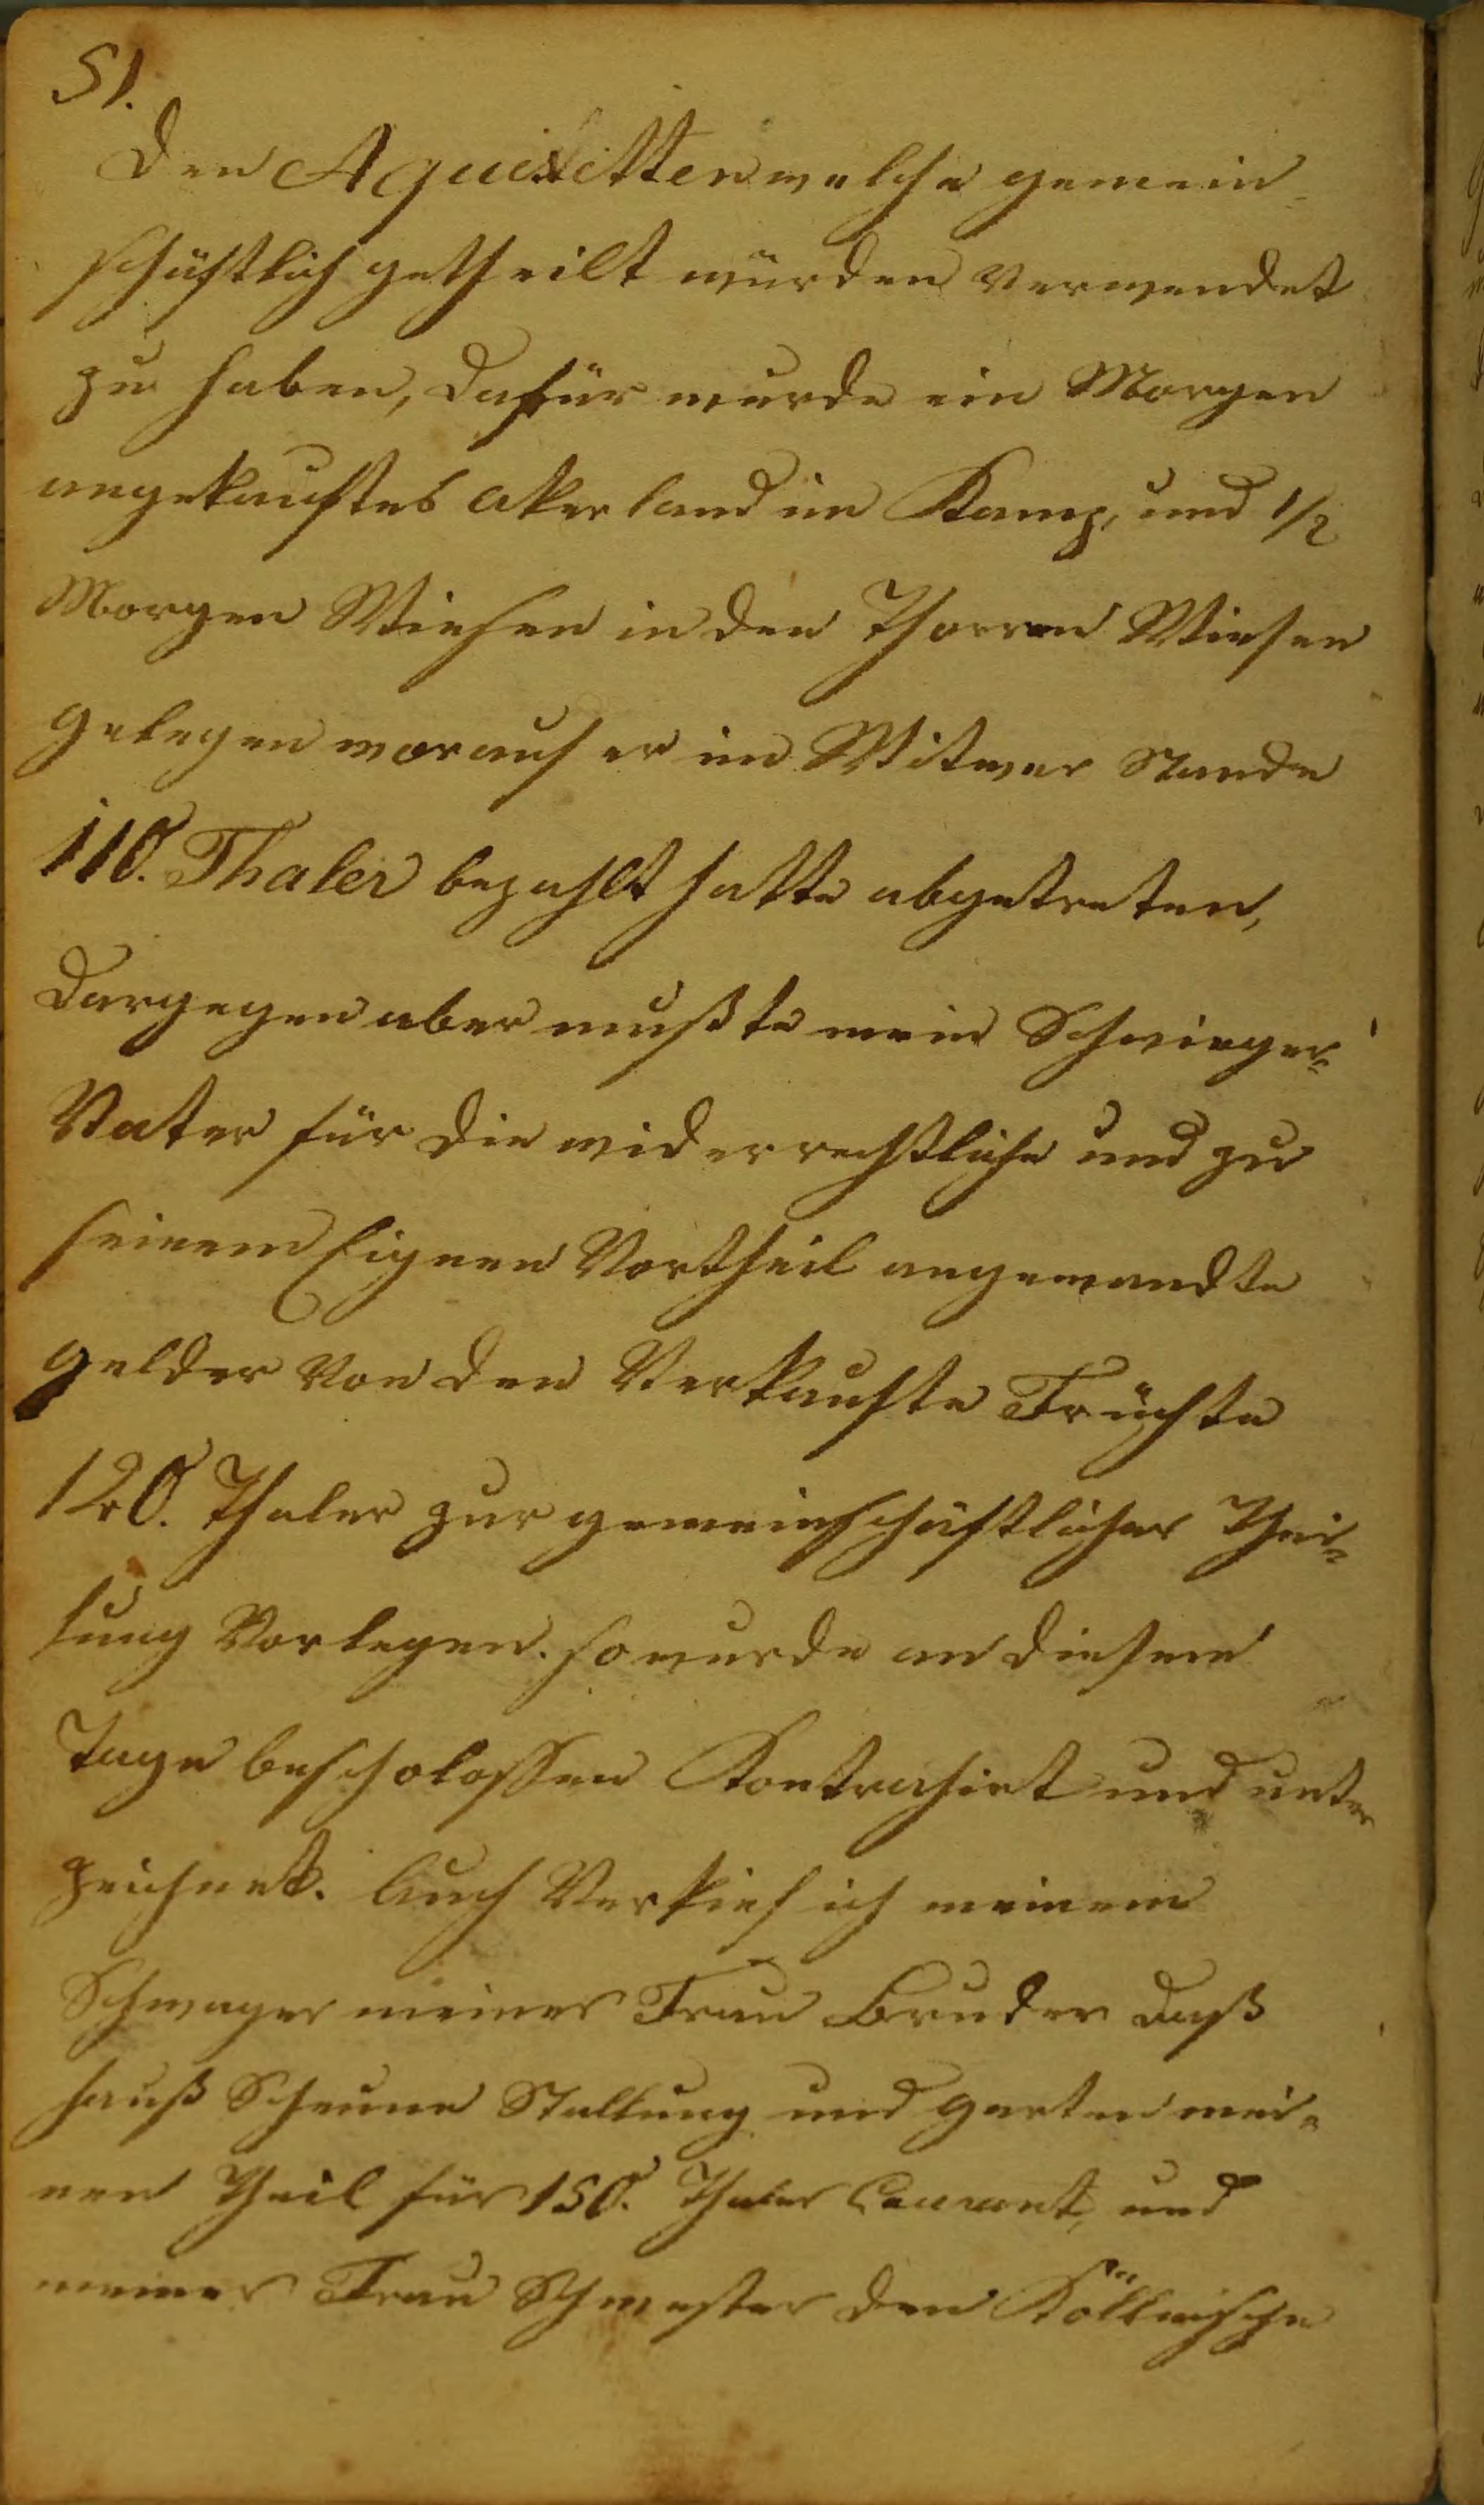 51.
den Aquisitten welche gemein-
schäftlich getheilt würden verwendet
zu haben, dafür wurde ein Morgen
angekauftes akerland im Kamp, und 1/2
Morgen Wiesen in den Thorren Wiesen
gelegen worauf er im Witwer Stande
110. Thaler bezahlt hatte abgetreten,
dargegen aber mußte mein Schwieger-
Vater für die widerrechtliche und zu
seinem Eignen Vortheil angewandte
gelder von den Verkaufte Früchte
120. Thaler zur gemeinschäftlicher Thei-
lung Vorlegen. so wurde an diesem
Tage bescholossen Kontrahirt und unter
zeichnet. Auch Verkief ich meinem
Schwager meiner Frau Bruder daß
hauß Scheune Stallung und garten mei-
nen Theil für 150. Thaler Courant, und
meiner Frau Schwester den Köllnische